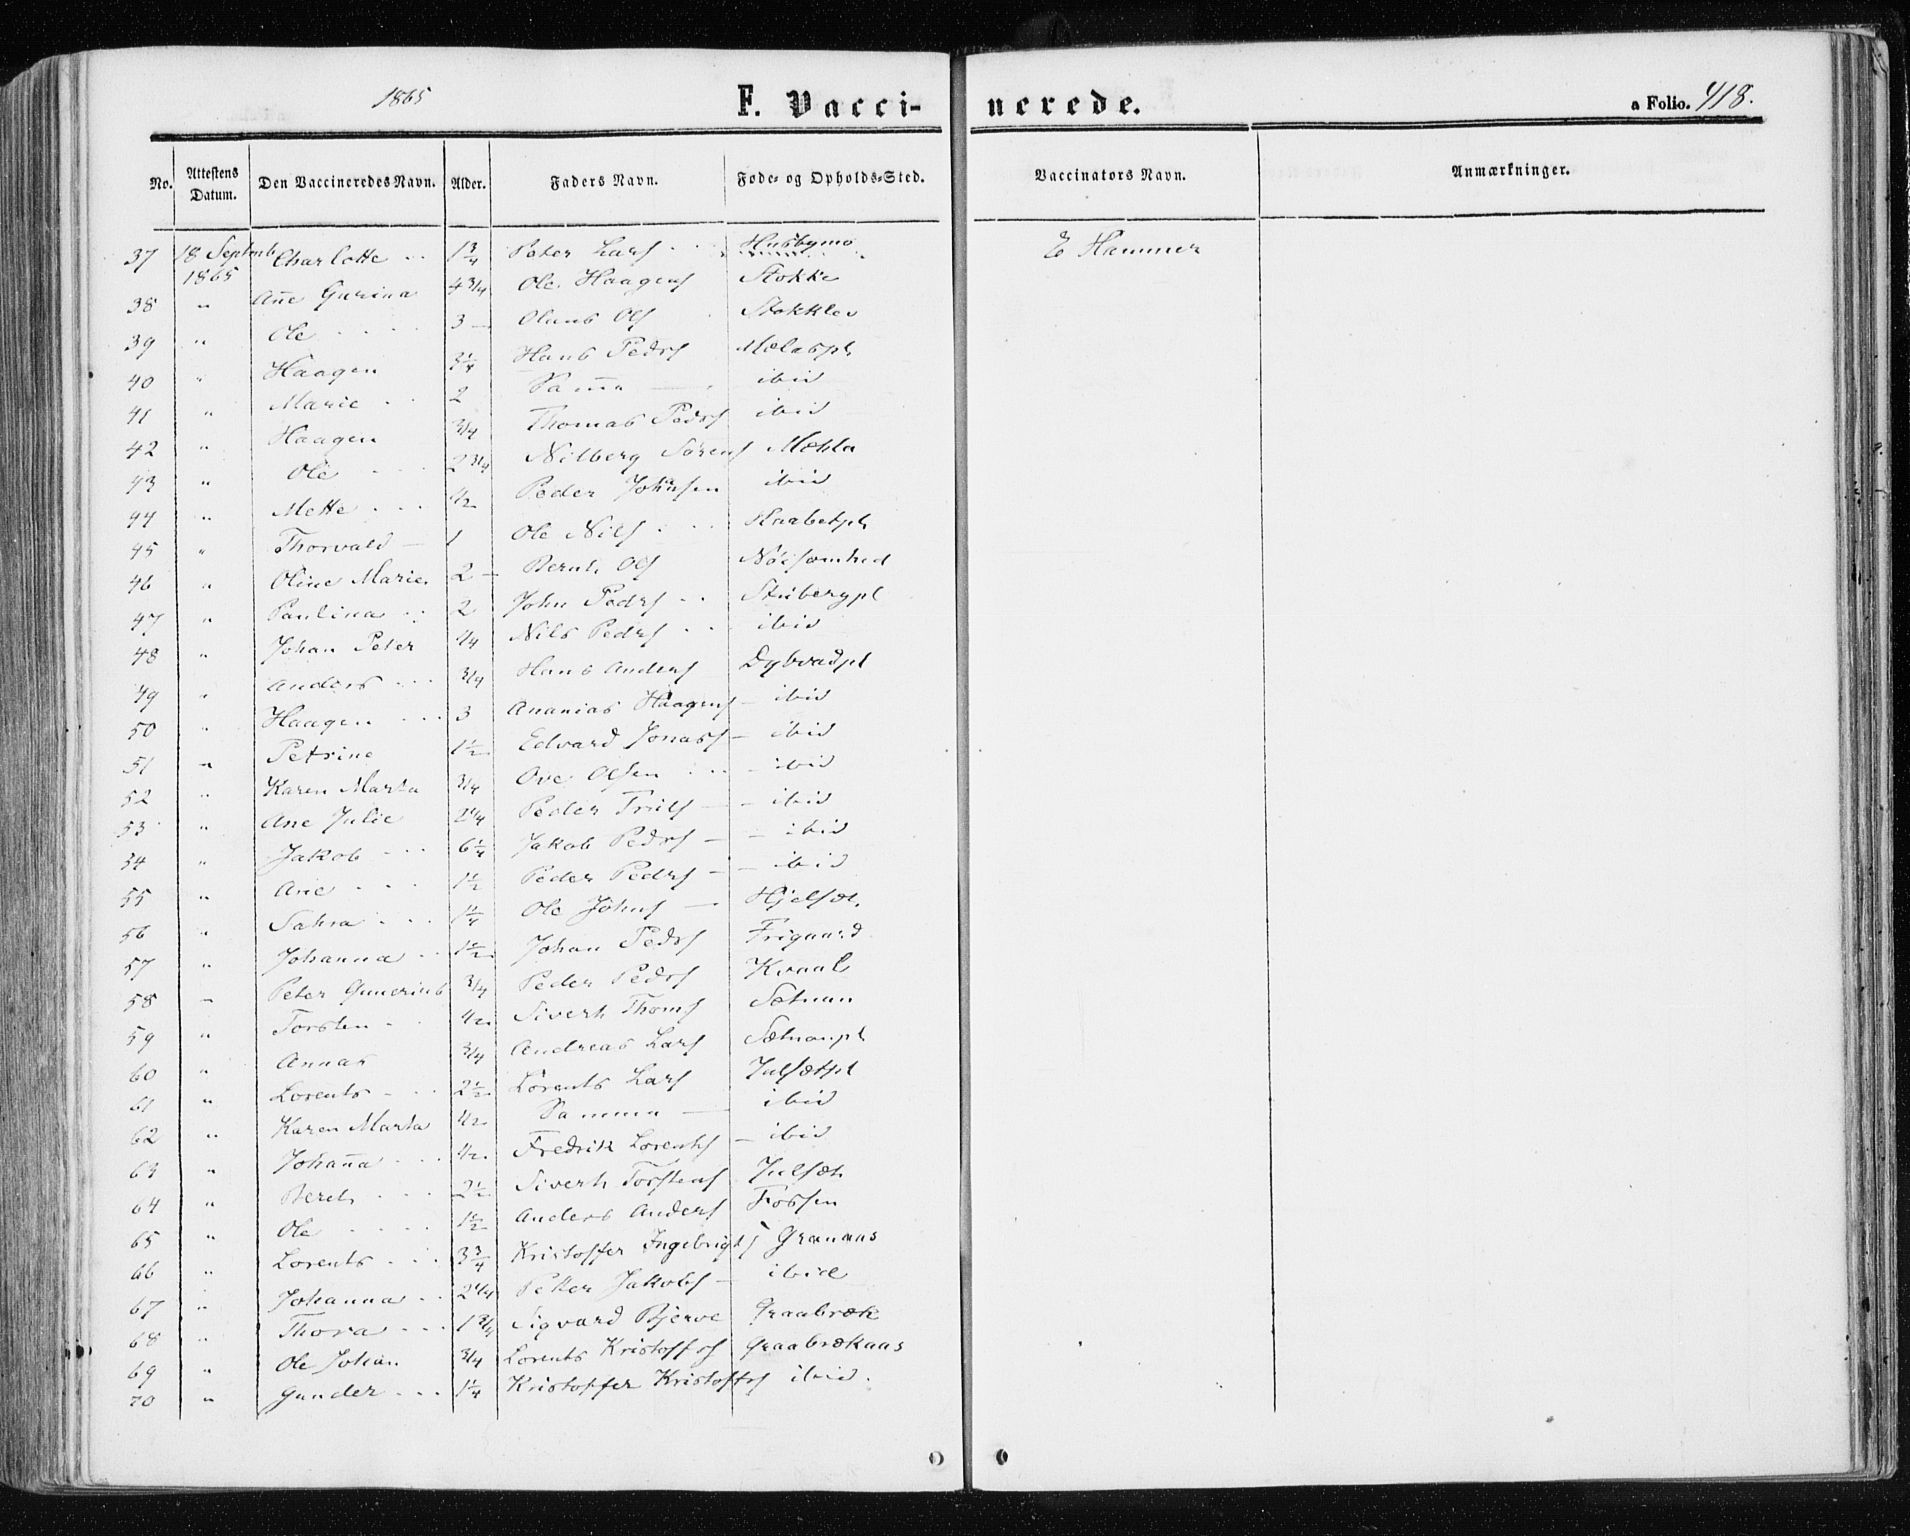 1865 F. Vaccinerede. a Folio. 418.
No. Attestens Datum. Den Vaccineredes Navn. Alder. Faders Navn. Føde- og Opholds-Sted. Vaccinators Navn. Anmærkninger.
37 18 Septemb 1865 Charlotte 1 3/4 Peter Lars Husbymo E Hammer
38 " Añe Gurina 4 3/4 Ole Haagens Stokke
39 " Ole 3 Olaus Ols Stokklev
40 " Haagen 3 1/4 Hans Peders Mælaspl
41 " Marie 2 Sam̄e ibid
42 " Haagen 3/4 Thomas Peders ibid
43 " Ole 2 3/4 Nilberg Sørens Mæhla
44 " Mette 1/2 Peder Johnsen ibid
45 " Thorvald 1 Ole Nils
46 " Oline Marie 2 Bernt Ols Nöisomhed
47 " Paulina 2 John Peders Stubergpl
48 " Johan Peter 1/4 Nils Peders ibid
49 " Anders 3/4 Hans Anders Dybvadpl
50 " Haagen 3 Ananias Haagens ibid
51 " Petrine 1 1/2 Edvard Jonas ibid
52 " Karen Marta 3/4 Ove Olsen ibid
53 " Ane Julie 2 1/4 Peder Truls ibid
54 " Jakob 6 1/4 Jakob Peders ibid
55 " Ane 1 1/2 Peder Peders ibid
56 " Sahra 1 1/4 Ole Johns Hjelsæt
57 " Johanna 1 1/2 Johan Peders Frigaard
58 " Peter Gunerius 3/4 Peder Peders Kvaal
59 " Torsten 1/2 Sivert Thoms Sætnan
60 " Annas 3/4 Andreas Lars Sætnanpl
61 " Lorents 2 1/2 Lorents Lars Julsætpl
62 " Karen Marta 1/2 Samma ibid
63 " Johaña 1/2 Fredrik Lorents ibid
64 " Beret 2 1/2 Sivert Torstens Julsæt
65 " Ole 1 1/2 Anders Anders Fossen
66 " Lorents 3 3/4 Kristoffer Ingebrigts Granaas
67 " Johanna 2 1/4 Petter Jakobs ibid
68 " Thora 1 3/4 Sigvard Bjerve Graabræk
69 " Ole Johan 3/4 Lorents Kristoffs Graabrækaas
70 " Gunder 1 1/4 Kristoffer Kristoffs ibid.